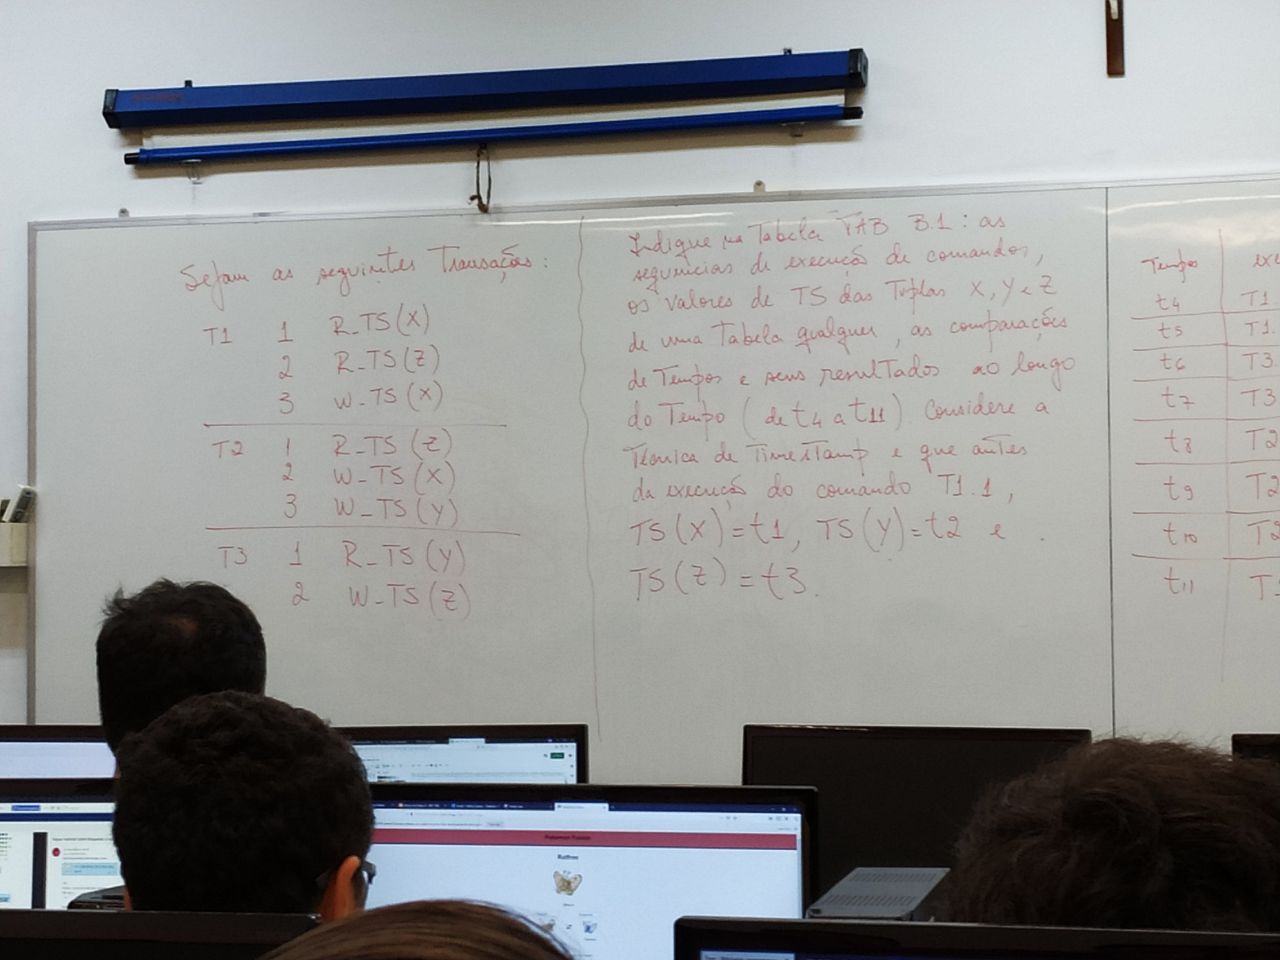 Sejam as seguintes Transações:
T1 1 R_TS(X)
2 R_TS(Z)
3 W_TS(X)
T2 1 R_TS(Z)
2 W_TS(X)
3 W_TS(Y)
T3 1 R_TS(Y)
2 W_TS(Z)
Indique na Tabela TAB B.1: as
sequências de execução de comandos,
os valores de TS das Tuplas X, Y e Z
de uma Tabela qualquer, as comparações
de Tempos e seus resultados ao longo
do Tempo (de t4 a t11). Considere a
Técnica de TimesTamp e que antes
da execução do comando T1.1,
TS(X)=t1, TS(Y)=t2 e
TS(Z)=t3.
Tempos exe
t4 T1
t5 T1.
t6 T3.
t7 T3
t8 T2
t9 T2
t10 T2
t11 T
Pokemon Fusion